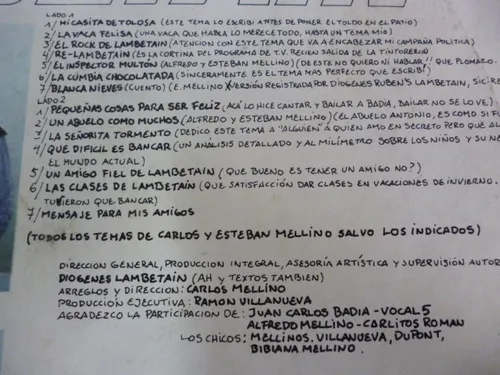 LADO 1
1/ MI CASITA DE TOLOSA (ESTE TEMA LO ESCRIBI ANTES DE PONER EL TOLDO EN EL PATIO)
2/ LA VACA FELISA (UNA VACA QUE HABLA LO MERECE TODO, HASTA UN TEMA MIO)
3/ EL ROCK DE LAMBETAIN (ATENCION CON ESTE TEMA QUE VA A ENCABEZAR MI CAMPAÑA POLITICA)
4/ RE-LAMBETAIN (ES LA CORTINA DEL PROGRAMA DE T.V. RECIEN SALIDA DE LA TINTORERIA)
5/ EL INSPECTOR MULTÓN (ALFREDO Y ESTEBAN MELLINO) (DE ESTE NO QUIERO NI HABLAR!! QUE PLOMAZO.
6/ LA CUMBIA CHOCOLATADA (SINCERAMENTE ES EL TEMA MAS PERFECTO QUE ESCRIBÍ)
7/ BLANCA NIEVES (CUENTO) (E. MELLINO) (VERSIÓN REGISTRADA POR DIOGENES RUBENS LAMBETAIN, SIC-RE
LADO 2
1/ PEQUEÑAS COSAS PARA SER FELIZ (ACÁ LO HICE CANTAR Y BAILAR A BADIA, BAILAR NO SE LO VE)
2/ UN ABUELO COMO MUCHOS (ALFREDO Y ESTEBAN MELLINO) (EL ABUELO ANTONIO, ES COMO SI FU
3/ LA SEÑORITA TORMENTO (DEDICO ESTE TEMA A "ALGUIEN" A QUIEN AMO EN SECRETO PERO QUE AL
4/ QUE DIFICIL ES BANCAR (UN ANALISIS DETALLADO Y AL MILÍMETRO SOBRE LOS NIÑOS Y SU NE
EL MUNDO ACTUAL)
5/ UN AMIGO FIEL DE LAMBETAIN (QUE BUENO ES TENER UN AMIGO NO?)
6/ LAS CLASES DE LAMBETAIN (QUE SATISFACCIÓN DAR CLASES EN VACACIONES DE INVIERNO.
TUVIERON QUE BANCAR)
7/ MENSAJE PARA MIS AMIGOS
(TODOS LOS TEMAS DE CARLOS Y ESTEBAN MELLINO SALVO LOS INDICADOS)
DIRECCION GENERAL, PRODUCCION INTEGRAL, ASESORÍA ARTÍSTICA Y SUPERVISIÓN AUTOR
DIOGENES LAMBETAIN (AH Y TEXTOS TAMBIEN)
ARREGLOS Y DIRECCION: CARLOS MELLINO
PRODUCCIÓN EJECUTIVA: RAMON VILLANUEVA
AGRADEZCO LA PARTICIPACION DE: JUAN CARLOS BADIA - VOCAL 5
ALFREDO MELLINO - CARLITOS ROMAN
LOS CHICOS: MELLINOS, VILLANUEVA, DUPONT,
BIBIANA MELLINO.